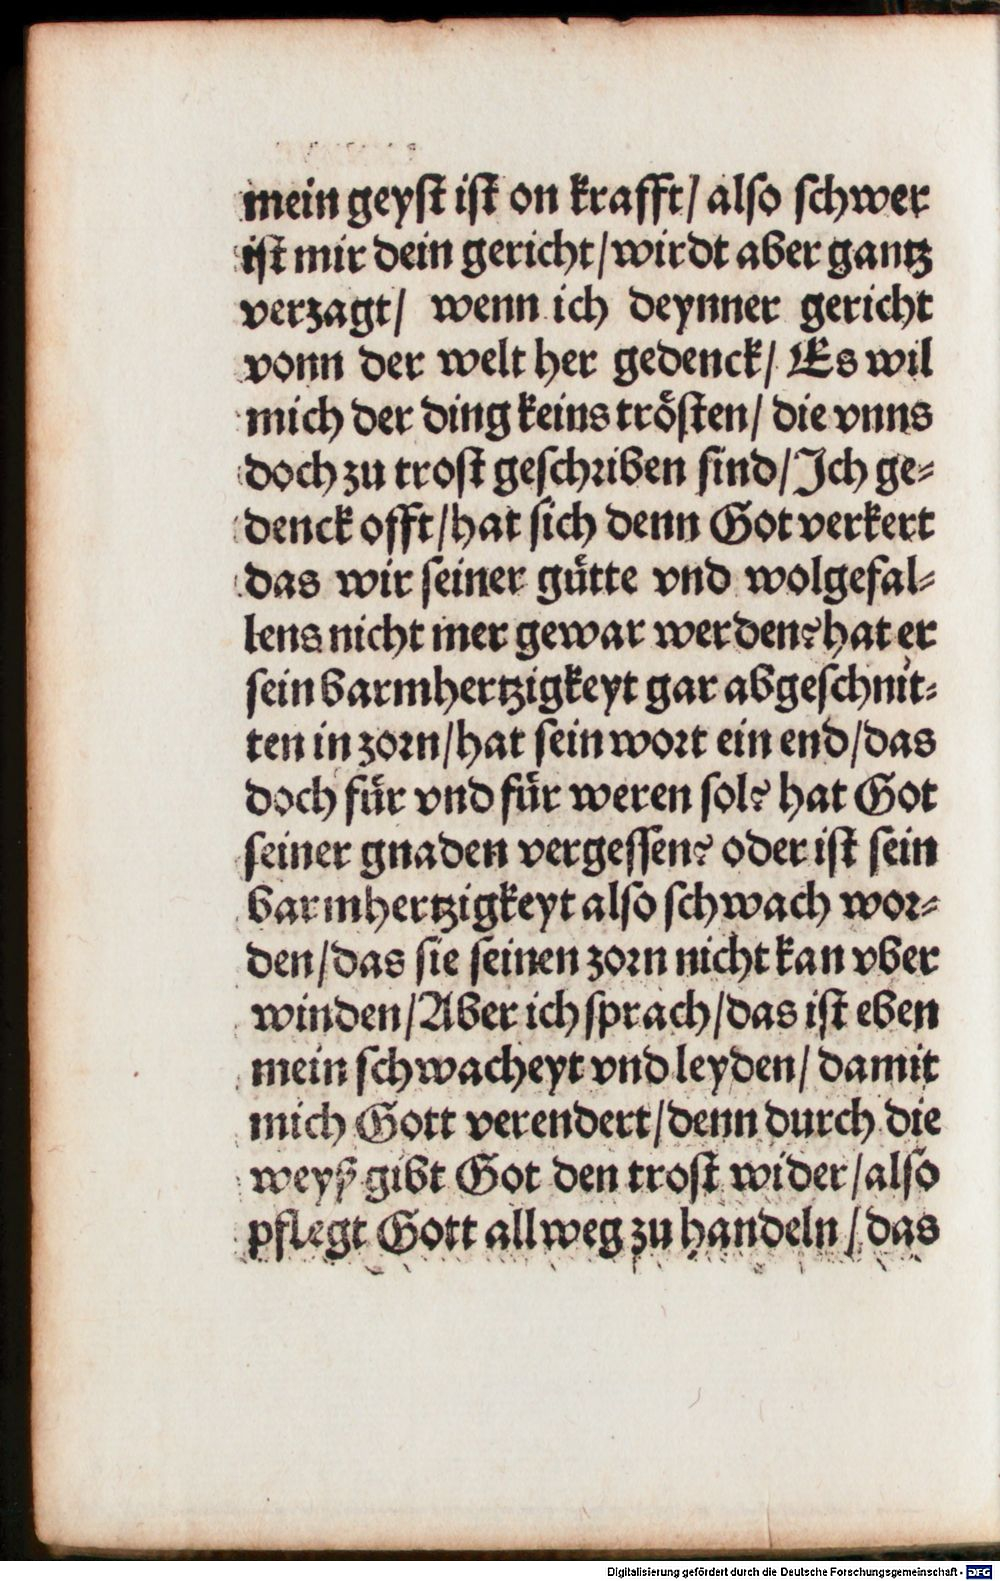 mein geyst ist on krafft/ also schwer
ist mir dein gericht/wirdt aber gantz
verzagt/ wenn ich deynner gericht
vonn der welt her gedenck/ Es wil
mich der ding keins trösten/ die vnns
doch zu trost geschriben sind/Ich ge⸗
denck offt/hat sich denn Got verkert
das wir seiner gütte vnd wolgefal⸗
lens nicht mer gewar werden? hat er
sein barmhertzigkeyt gar abgeschnit⸗
ten in zorn/hat sein wort ein end/das
doch für vnd für weren sol? hat Got
seiner gnaden vergessen? oder ist sein
barmhertzigkeyt also schwach wor⸗
den/das sie seinen zorn nicht kan vber
winden/Aber ich sprach/das ist eben
mein schwacheyt vnd leyden/ damit
mich Gott verendert/denn durch die
weyß gibt Got den trost wider/also
pflegt Gott allweg zu handeln/das
Digitalisierung gefördert durch die Deutsche Forschungsgemeinschaft - DFG